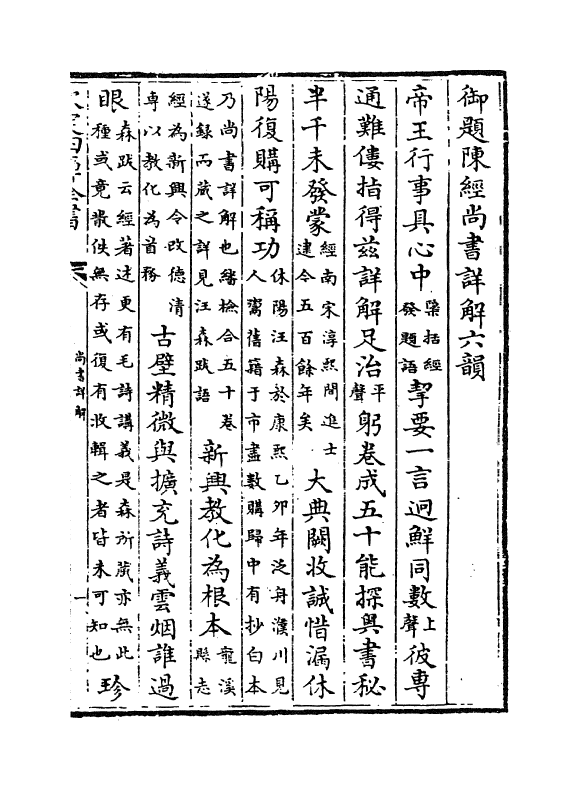 御題陳經尚書詳解六韻
帝王行事具心中檃括經發題語挈要一言迥鮮同數上聲彼専
通難僂指得兹詳解足治平聲躬卷成五十能探奥書秘
半千未發蒙經南宋淳熙間進士逮今五百餘年矣大典闕收誠惜漏休
陽復購可稱功休陽汪森於康熙乙卯年泛舟濮川見人鬻舊籍于市盡數購歸中有抄白本
乃尚書詳解也繙檢合五十卷遂録而藏之詳見汪森跋語新興教化為根本龍溪縣志
經為新興令政德清専以教化為首務古壁精微與擴充詩義雲烟誰過
眼森跋云經著述更有毛詩講義是森所蔵亦無此種或竟散佚無存或復有收輯之者皆未可知也珍
欽定四庫全書
尚書詳解
一